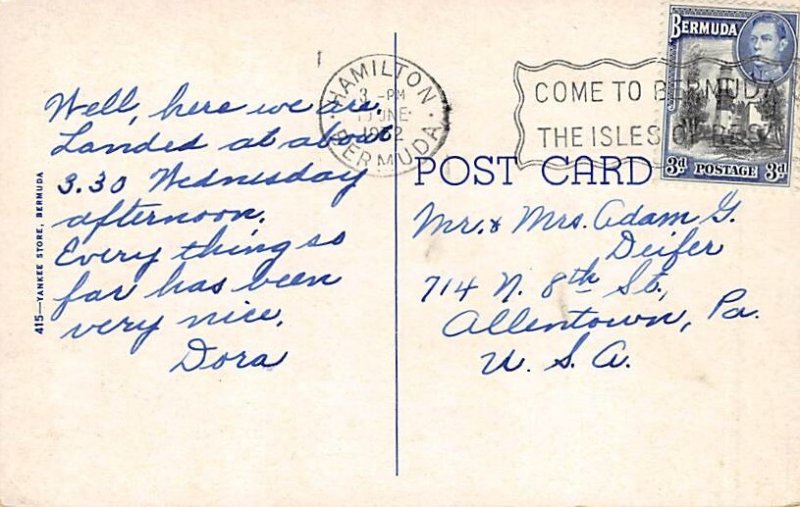 Well, here we are.
Landed at about
3.30 Wednesday
afternoon.
Every thing so
far has been
very nice.
Dora
415—YANKEE STORE, BERMUDA
HAMILTON
3 -PM
JUNE
1952
BERMUDA
COME TO BERMUDA
THE ISLES OF REST
BERMUDA
3d POSTAGE 3d
POST CARD
Mr. & Mrs. Adam G.
Deifer
714 N. 8th St.,
Allentown, Pa.
U. S. A.